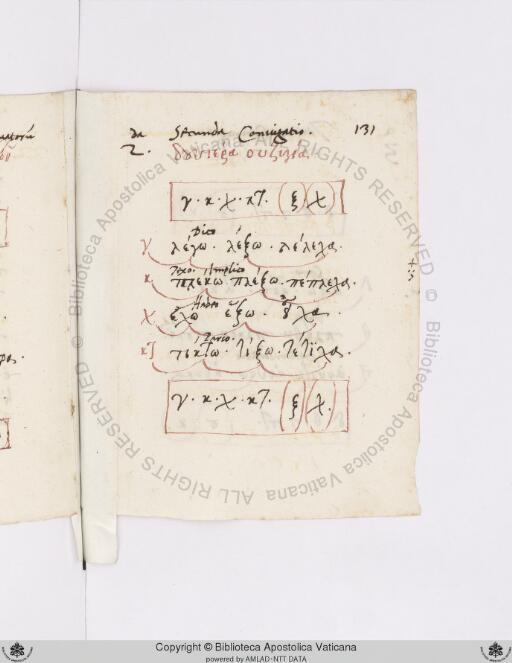 da Secunda Coniugatio. 131
2. δευτέρα συζυγία
γ · κ · χ · κτ. (ξ)(χ)
Dico
γ λέγω · λέξω · λέλεχα.
κ πλέκω · πλέξω · πέπλεχα.
χ ἔχω ἕξω · ἦχα.
κτ τίκτω · τίξω · τέτιχα.
γ · κ · χ · κτ. (ξ)(χ)
Copyright © Biblioteca Apostolica Vaticana
powered by AMLAD-NTT DATA
© Biblioteca Apostolica Vaticana ALL RIGHTS RESERVED
© Biblioteca Apostolica Vaticana ALL RIGHTS RESERVED